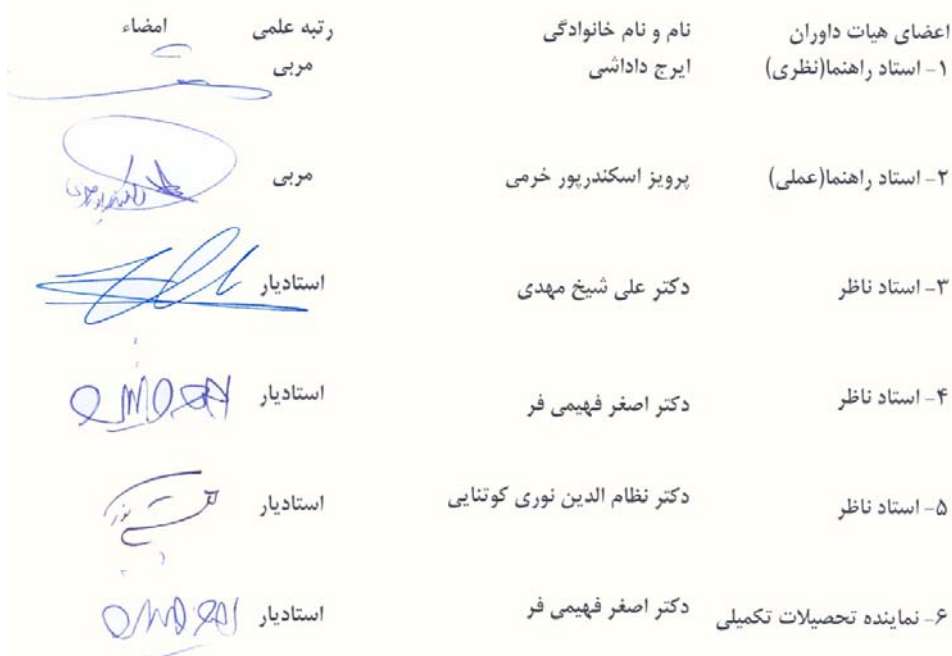 اعضای هیات داوران نام و نام خانوادگی رتبه علمی امضاء
۱- استاد راهنما(نظری) ایرج داداشی مربی
۲- استاد راهنما(عملی) پرویز اسکندرپور خرمی مربی
۳- استاد ناظر دکتر علی شیخ مهدی استادیار
۴- استاد ناظر دکتر اصغر فهیمی فر استادیار
۵- استاد ناظر دکتر نظام الدین نوری کوتنایی استادیار
۶- نماینده تحصیلات تکمیلی دکتر اصغر فهیمی فر استادیار